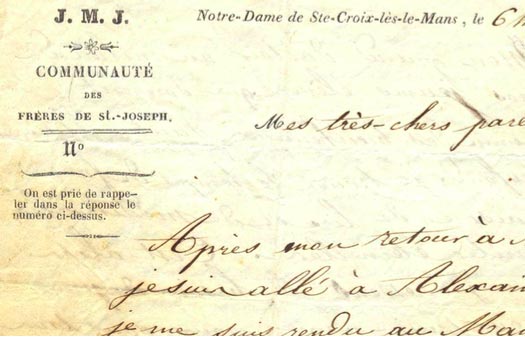 J. M. J.
Notre-Dame de Ste-Croix-lès-le-Mans, le 6
COMMUNAUTÉ
DES
FRÈRES DE St.-JOSEPH.
No
On est prié de rappe-
ler dans la réponse le
numéro ci-dessus.
Mes très-chers pare
Après mon retour à
je suis allé à Alexan
je me suis rendu au Ma